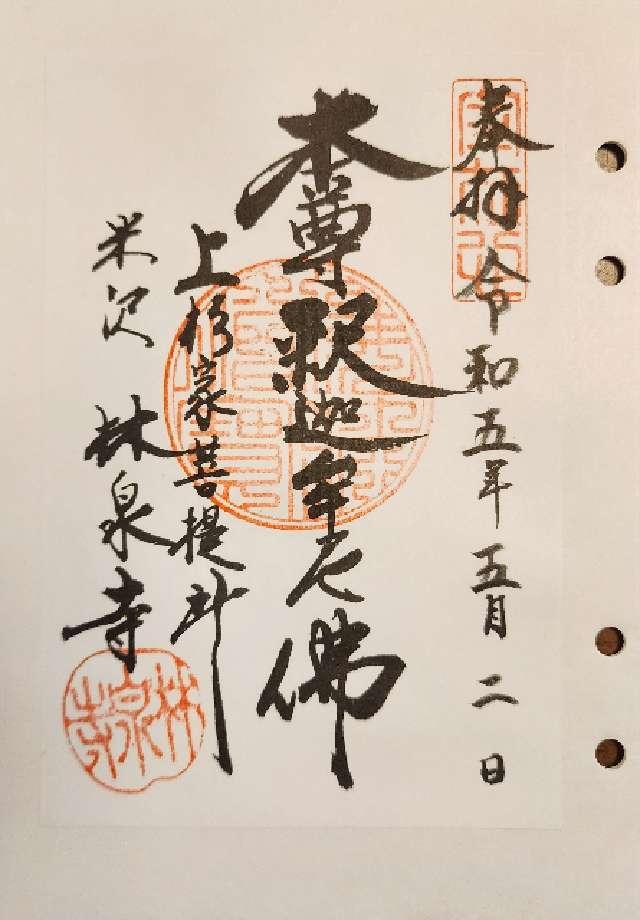 奉拝 令和五年五月二日
本尊釈迦牟尼佛
上杉家菩提所
米沢 林泉寺
林泉寺